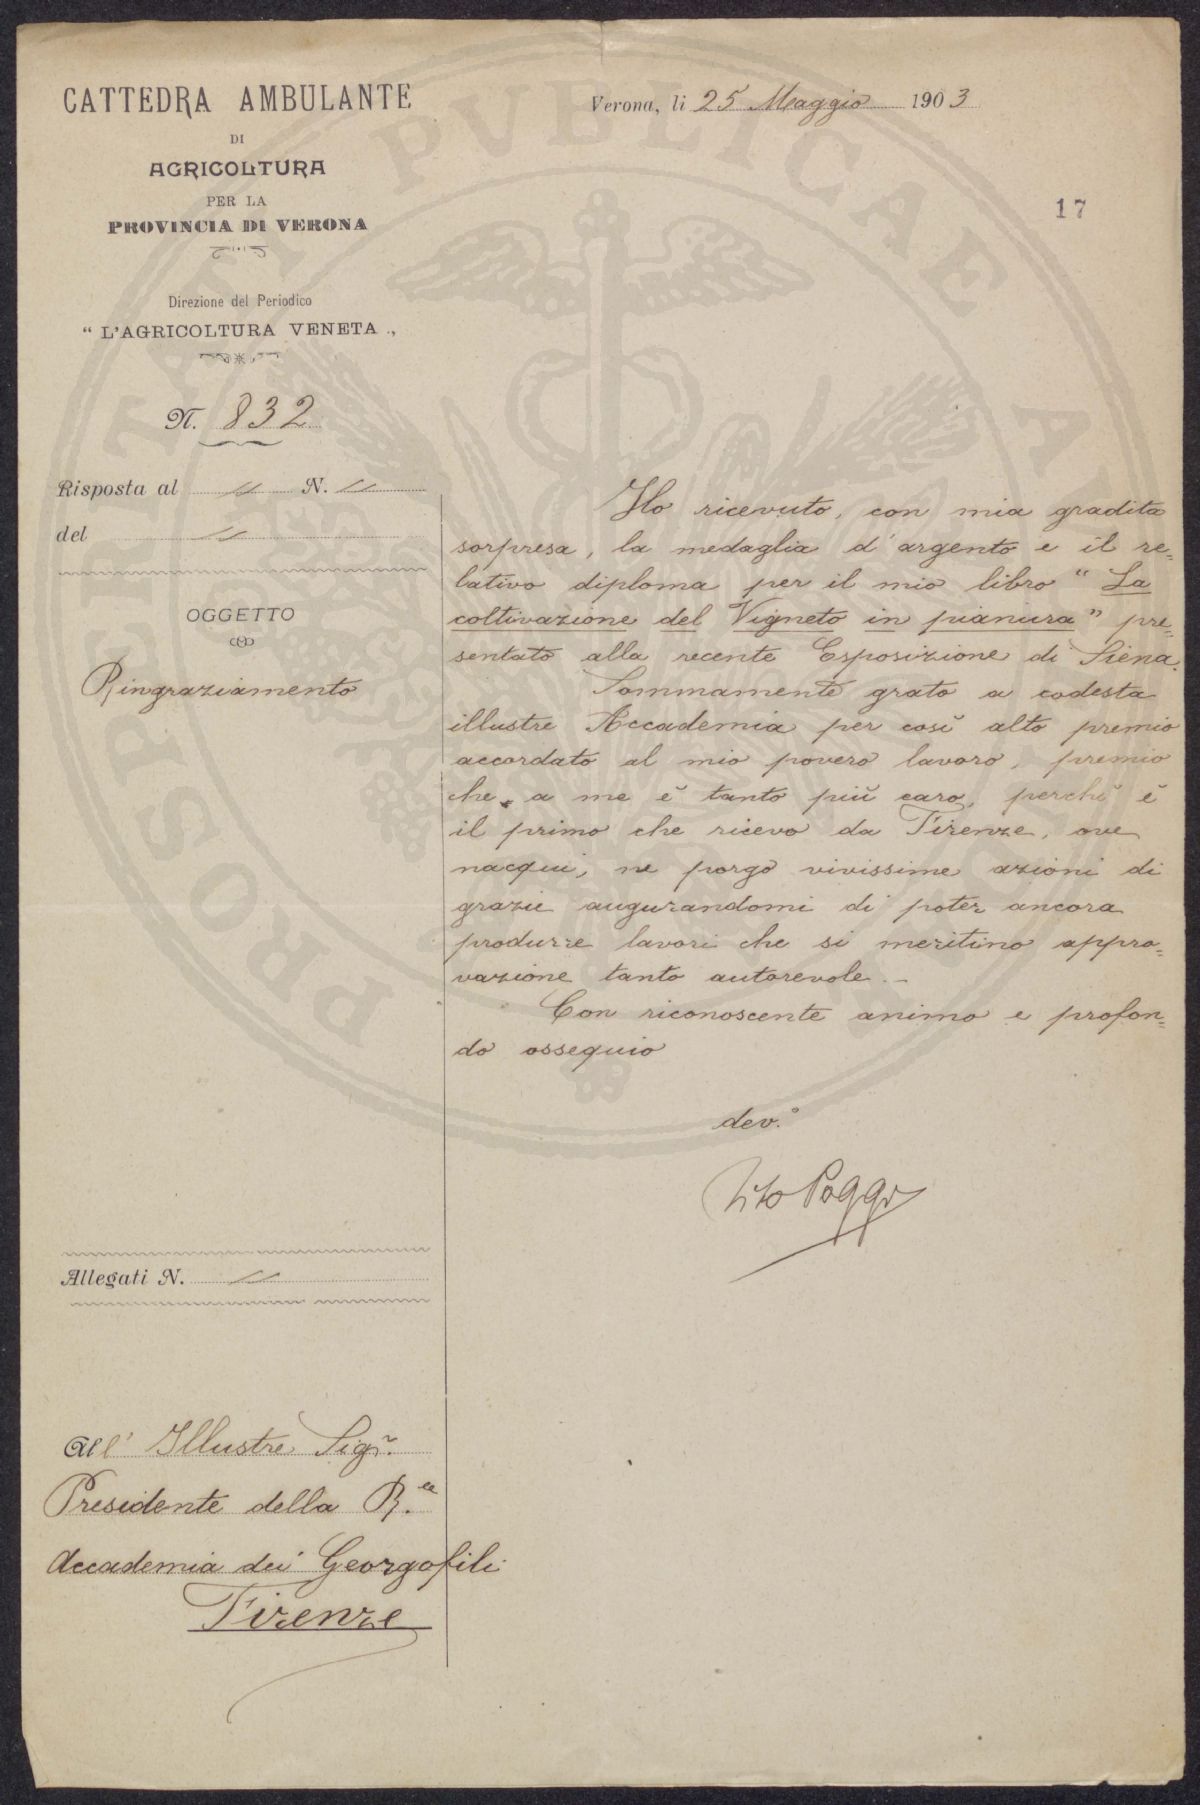 CATTEDRA AMBULANTE
DI
AGRICOLTURA
PER LA
PROVINCIA DI VERONA
Direzione del Periodico
“ L'AGRICOLTURA VENETA „
N. 832
Risposta al " N. "
del "
OGGETTO
Ringraziamento
Verona, li 25 Maggio 1903
17
Ho ricevuto, con mia gradita
sorpresa, la medaglia d'argento e il re=
lativo diploma per il mio libro “La
coltivazione del Vigneto in pianura” pre=
sentato alla recente Esposizione di Siena.
Sommamente grato a codesta
illustre Accademia per così alto premio
accordato al mio povero lavoro, premio
che a me è tanto più caro, perchè è
il primo che ricevo da Firenze, ove
nacqui, ne porgo vivissime azioni di
grazie augurandomi di poter ancora
produrre lavori che si meritino appro=
vazione tanto autorevole. –
Con riconoscente animo e profon=
do ossequio
dev.°
Tito Poggi
Allegati N. "
All' Illustre Sigr.
Presidente della R.le
Accademia dei Georgofili
Firenze
PROSPERITATI PVBLICAE AVGENDAE